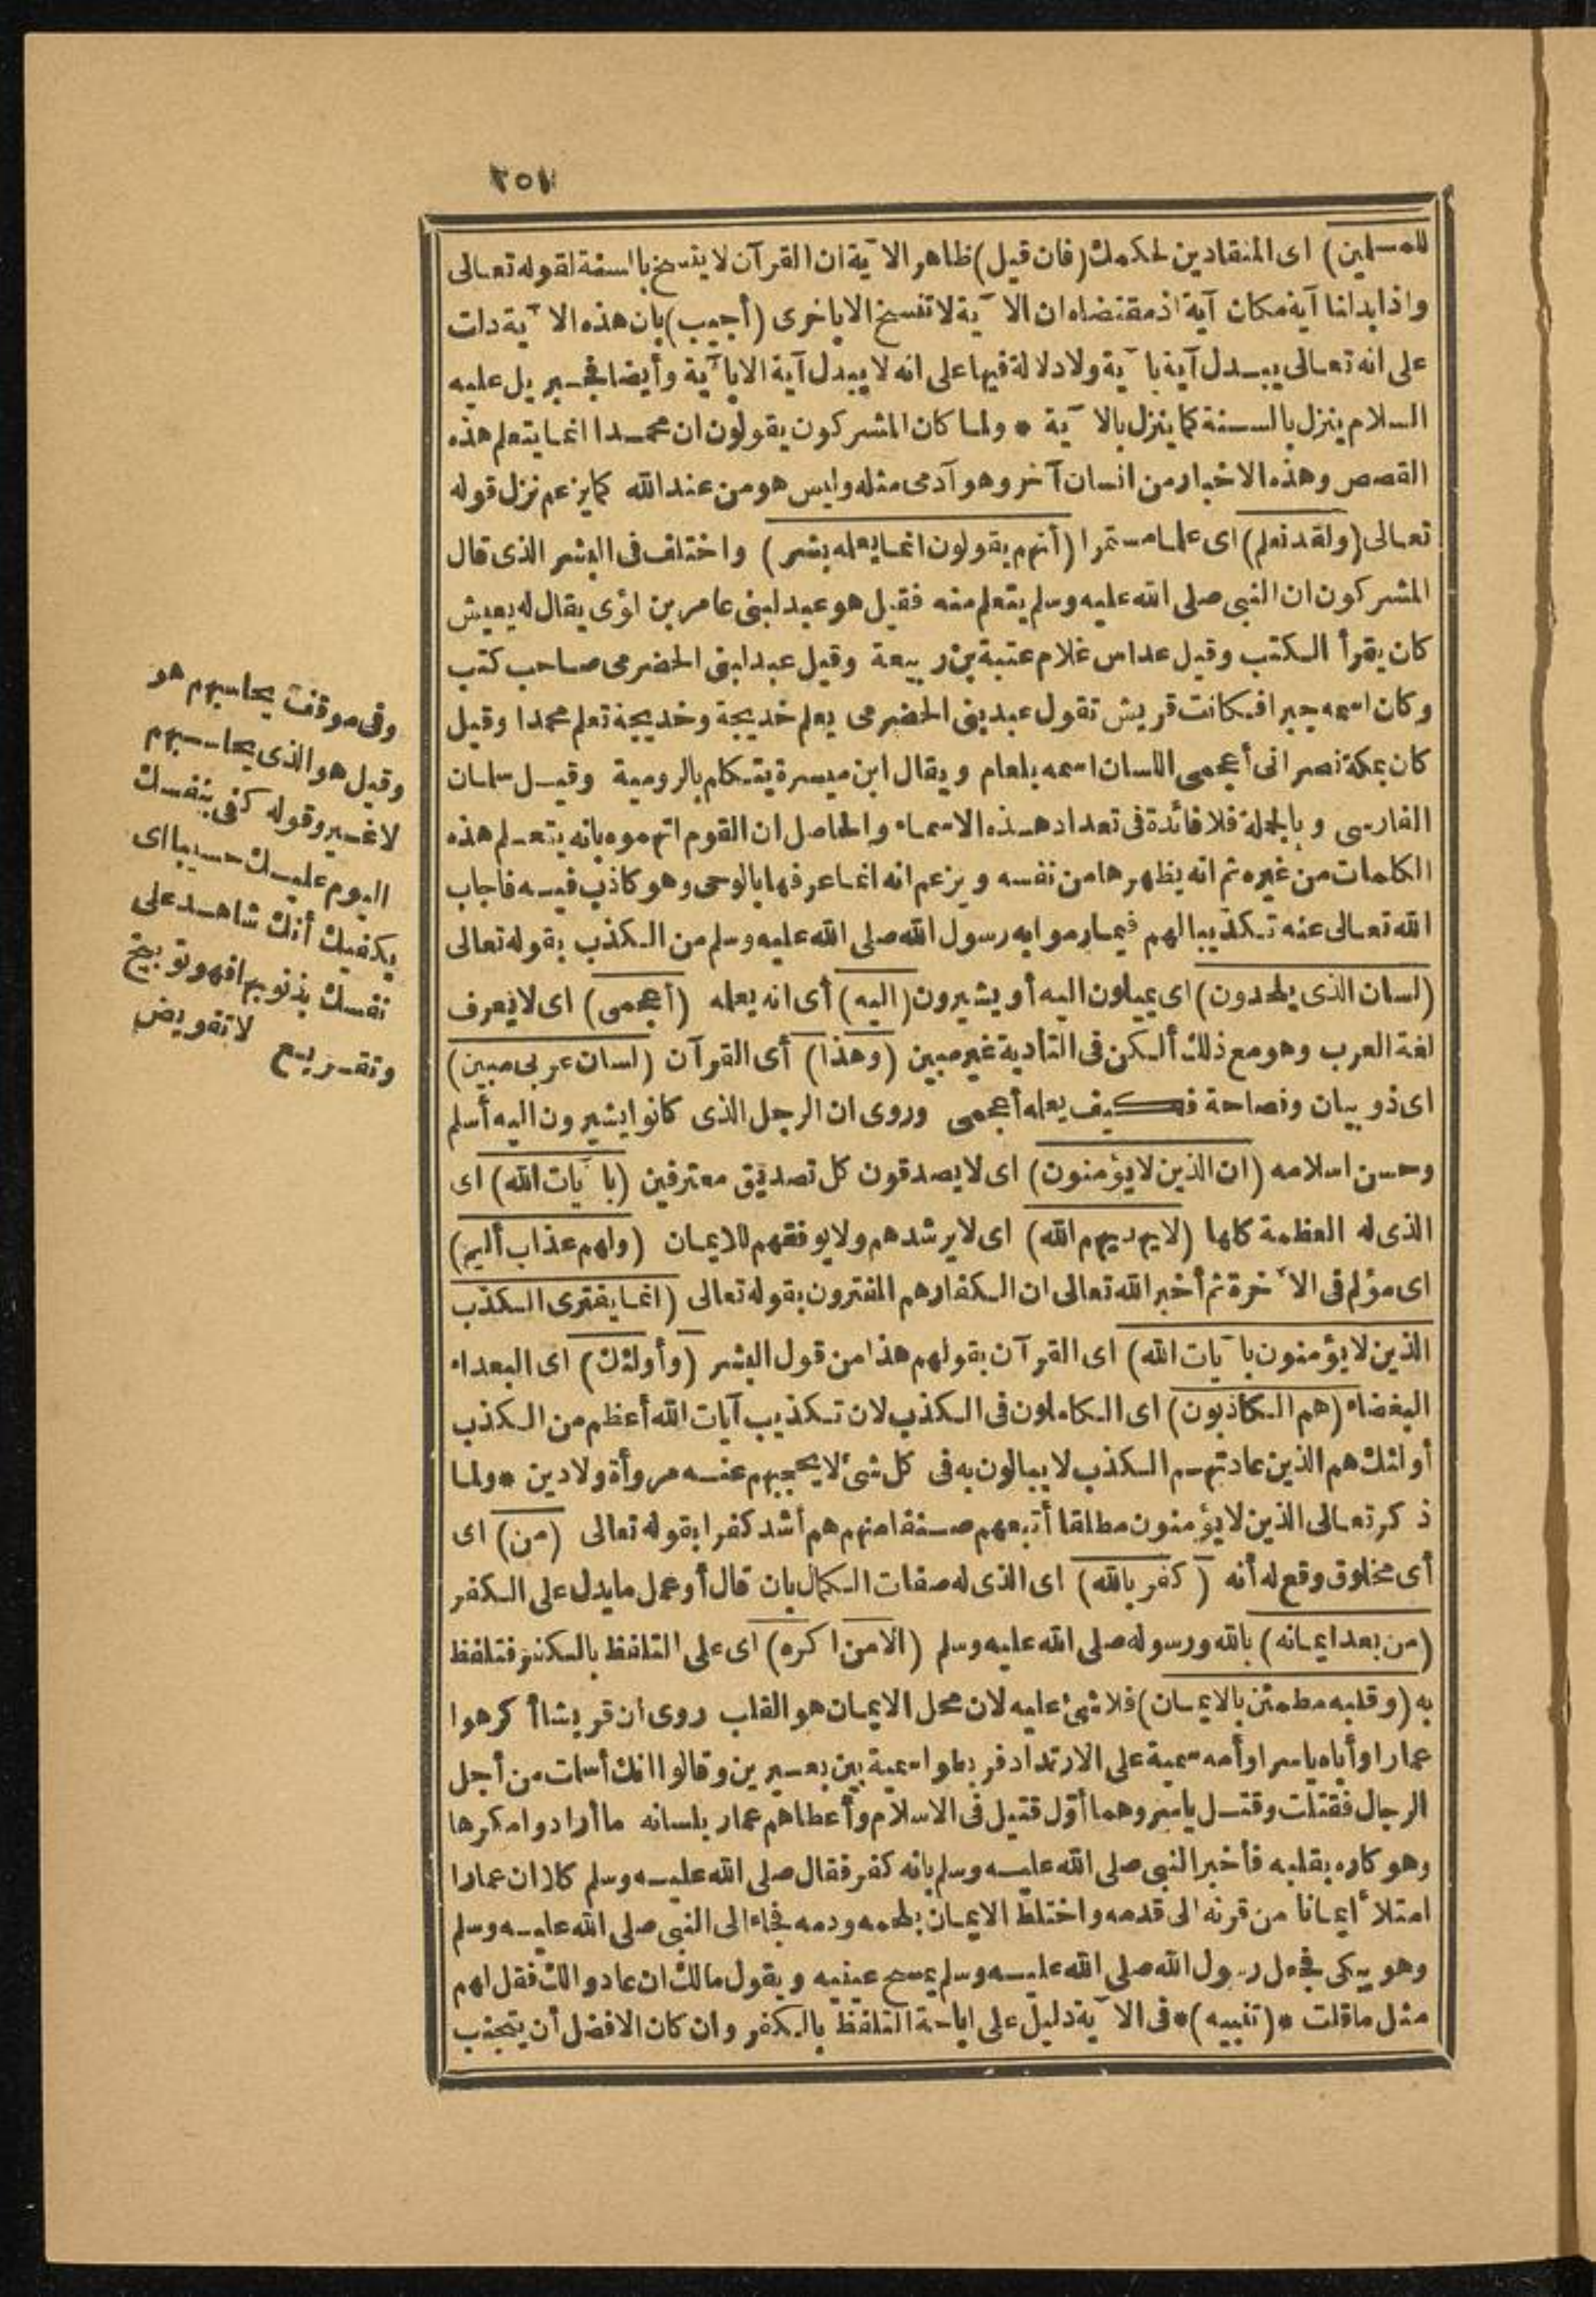 ٢٥١
للمسلمين) اى المنقادين لحكمك (فان قيل) ظاهر الآية ان القرآن لا ينسخ بالسنة لقوله تعالى
واذا بدلنا آية مكان آية اذ مقتضاه ان الآية لا تنسخ الا باخرى (أجيب) بان هذه الآية دلت
على انه تعالى يبدل آية بآية ولا دلالة فيها على انه لا يبدل آية الا بآية وأيضا فجبريل عليه
السلام ينزل بالسنة كما ينزل بالآية * ولما كان المشركون يقولون ان محمدا انما يتعلم هذه
القصص وهذه الاخبار من انسان آخر وهو آدمى مثله وليس هو من عند الله كما يزعم نزل قوله
تعالى (ولقد نعلم) اى علما مستمرا (أنهم يقولون انما يعلمه بشر) واختلف فى البشر الذى قال
المشركون ان النبى صلى الله عليه وسلم يتعلم منه فقيل هو عبد لبنى عامر بن لؤى يقال له يعيش
كان يقرأ الكتب وقيل عداس غلام عتبة بن ربيعة وقيل عبد لبنى الحضرمى صاحب كتب
وكان اسمه جبرا فكانت قريش تقول عبد بنى الحضرمى يعلم خديجة وخديجة تعلم محمدا وقيل
كان بمكة نصرانى أعجمى اللسان اسمه بلعام ويقال ابن ميسرة يتكلم بالرومية وقيل سلمان
الفارسى وبالجملة فلا فائدة فى تعداد هذه الاسماء والحاصل ان القوم اتهموه بانه يتعلم هذه
الكلمات من غيره ثم انه يظهرها من نفسه ويزعم انه انما عرفها بالوحى وهو كاذب فيه فاجاب
الله تعالى عنه تكذيبا لهم فيما رموا به رسول الله صلى الله عليه وسلم من الكذب بقوله تعالى
(لسان الذى يلحدون) اى يميلون اليه أو يشيرون (اليه) أى انه يعلمه (أعجمى) اى لا يعرف
لغة العرب وهو مع ذلك ألكن فى التأدية غير مبين (وهذا) أى القرآن (لسان عربى مبين)
اى ذو بيان وفصاحة فكيف يعلمه أعجمى وروى ان الرجل الذى كانوا يشيرون اليه أسلم
وحسن اسلامه (ان الذين لا يؤمنون) اى لا يصدقون كل تصديق معترفين (بآيات الله) اى
الذى له العظمة كلها (لا يهديهم الله) اى لا يرشدهم ولا يوفقهم للايمان (ولهم عذاب أليم)
اى مؤلم فى الآخرة ثم أخبر الله تعالى ان الكفار هم المفترون بقوله تعالى (انما يفترى الكذب
الذين لا يؤمنون بآيات الله) اى القرآن بقولهم هذا من قول البشر (وأولئك) اى البعداء
البغضاء (هم الكاذبون) اى الكاملون فى الكذب لان تكذيب آيات الله أعظم من الكذب
أولئك هم الذين عادتهم الكذب لا يبالون به فى كل شئ لا يحجبهم عنه مروأة ولا دين * ولما
ذكر تعالى الذين لا يؤمنون مطلقا أتبعهم صنفا منهم هم أشد كفرا بقوله تعالى (من) اى
أى مخلوق وقع له أنه (كفر بالله) اى الذى له صفات الكمال بان قال أو عمل ما يدل على الكفر
(من بعد ايمانه) بالله ورسوله صلى الله عليه وسلم (الا من اكره) اى على التلفظ بالكفر فتلفظ
به (وقلبه مطمئن بالايمان) فلا شئ عليه لان محل الايمان هو القلب روى ان قريشا أكرهوا
عمارا وأباه ياسرا وأمه سمية على الارتداد فربطوا سمية بين بعيرين وقالوا انك أسلمت من أجل
الرجال فقتلت وقتل ياسر وهما أوّل قتيل فى الاسلام وأعطاهم عمار بلسانه ما أرادوا مكرها
وهو كاره بقلبه فأخبر النبى صلى الله عليه وسلم بانه كفر فقال صلى الله عليه وسلم كلا ان عمارا
امتلأ ايمانا من قرنه الى قدمه واختلط الايمان بلحمه ودمه فجاء الى النبى صلى الله عليه وسلم
وهو يبكى فجعل رسول الله صلى الله عليه وسلم يمسح عينيه ويقول مالك ان عادوا لك فقل لهم
مثل ما قلت * (تنبيه) * فى الآية دليل على اباحة التلفظ بالكفر وان كان الافضل أن يتجنب
وفى موقف يحاسبهم هو
وقيل هو الذى يحاسبهم
لا غير وقوله كفى بنفسك
اليوم عليك حسيبا اى
يكفيك أنك شاهد على
نفسك بذنوبها فهو توبيخ
وتقريع لا تفويض